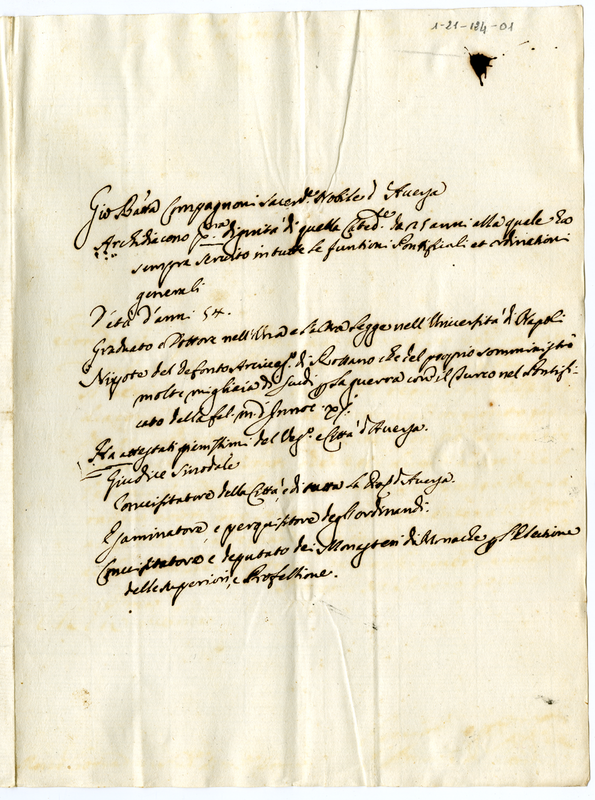 1-21-184-01
Gio Batta Compagnoni Sacerd.e Nobile d'Aversa
Archidiacono p.ma dignità di quella Cated.le da 25 anni alla quale ha
sempre servito in tutte le funtioni Pontificali et ordinationi
generali
D'età d'anni 54.
Graduato e Dottore nell'una e l'altra legge nell'Università di Napoli
Nipote del defonto Arcives.o di Rossano che del proprio somministrò
molte migliaia di scudi p la guerra con il Turco nel Pontifi-
cato della fel. m. d'Innoc. XI.
Ha attestati pienissimi del Ves.o e Città d'Aversa.
Giudice Sinodale
Convisitatore della Città, e di tutta la d'Aversa.
Esaminatore, e perquisitore degl'ordinandi.
Convisitatore e deputato dei Monasteri di Monache p l'Elettione
delle superiori, e Professione.